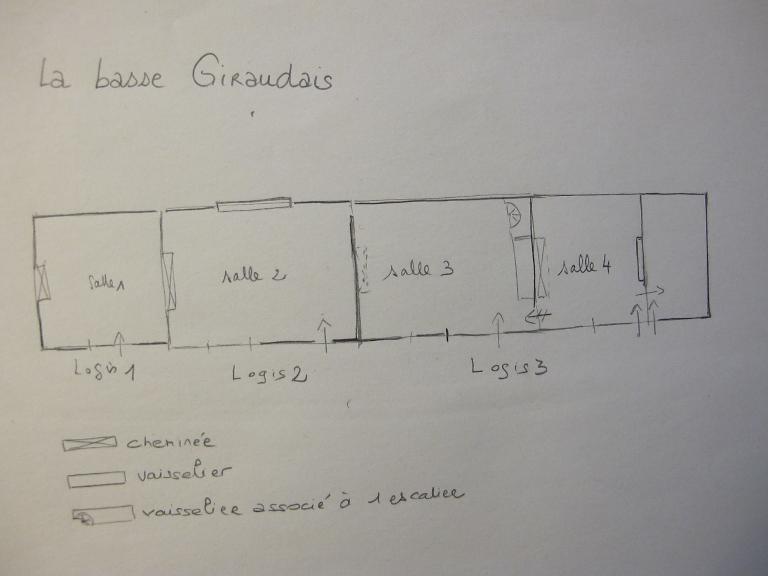 La basse Giraudais
salle 1
salle 2
salle 3
salle 4
Logis 1
Logis 2
Logis 3
cheminée
vaisselier
vaisselier associé à 1 escalier